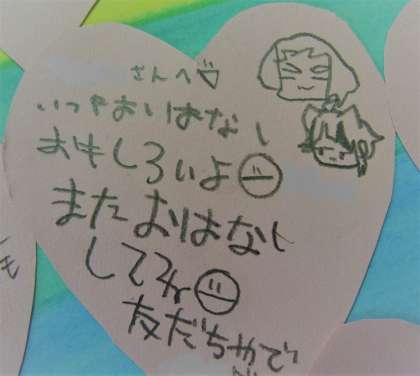 さんへ♡
いつもおはなし
おもしろいよ
またおはなし
してね
友だちやで
も